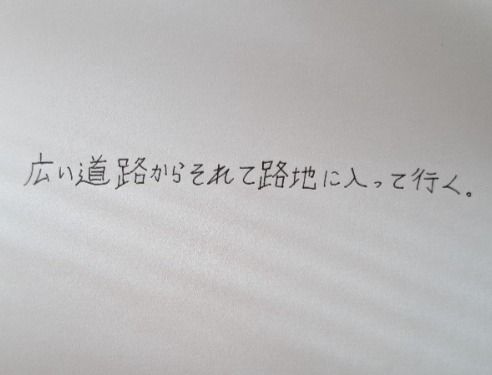 広い道路からそれて路地に入って行く。